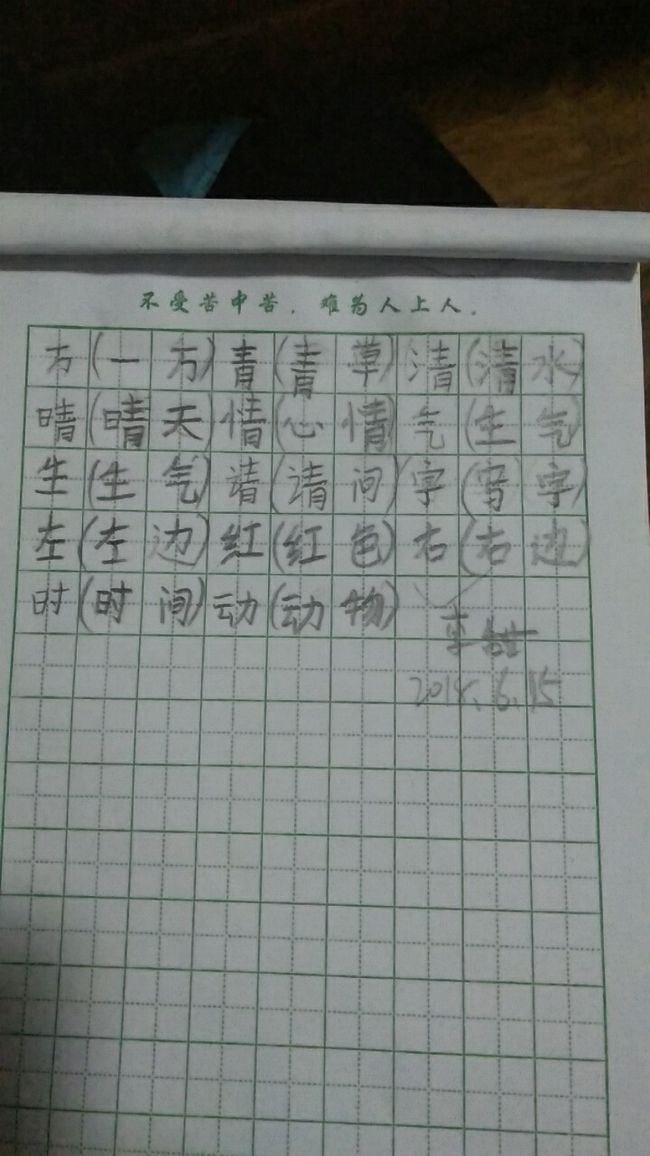 不受苦中苦，难为人上人。
方(一方)青(青草)清(清水)
晴(晴天)情(心情)气(生气)
生(生气)请(请问)字(写字)
左(左边)红(红色)右(右边)
时(时间)动(动物)
6.15